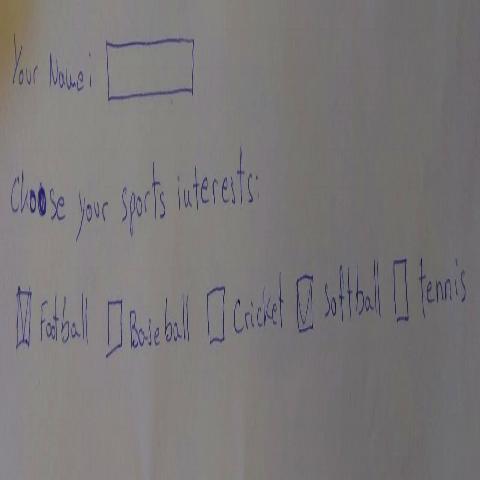 Your Name:
Choose your sports interests:
☑ Football ☐ Baseball ☐ Cricket ☑ Softball ☐ tennis